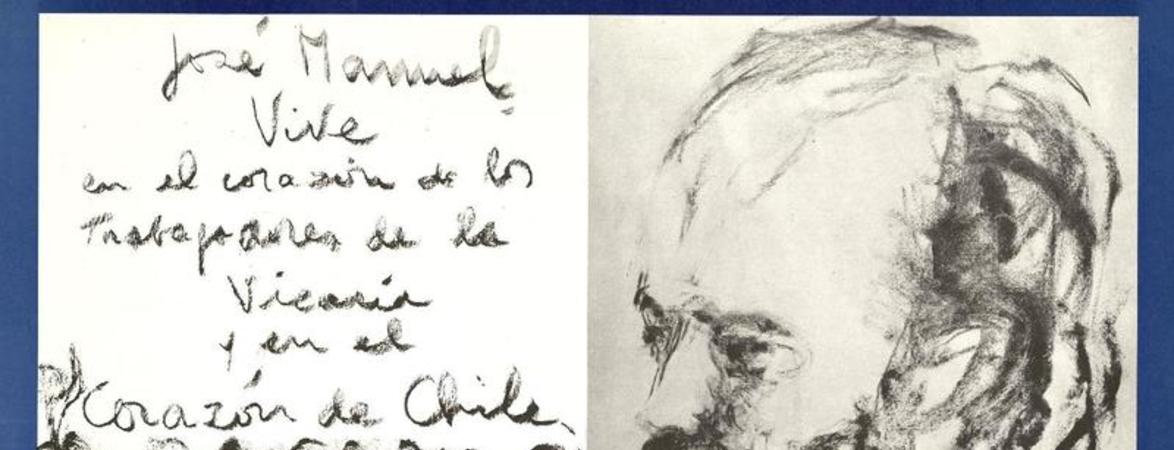 José Manuel
Vive
en el corazón de los
Trabajadores de la
Vicaría
y en el
Corazón de Chile